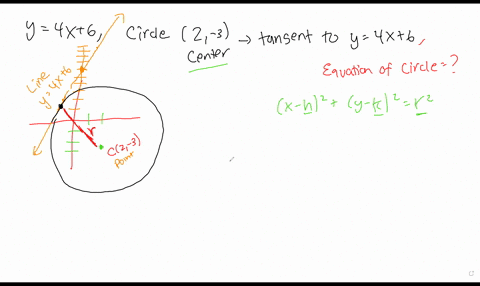 y = 4x+6, Circle (2,-3) → tangent to y = 4x+6,
Center
Equation of Circle = ?
(x-h)² + (y-k)² = r²
Line
y=4x+6
r
C(2,-3)
Point